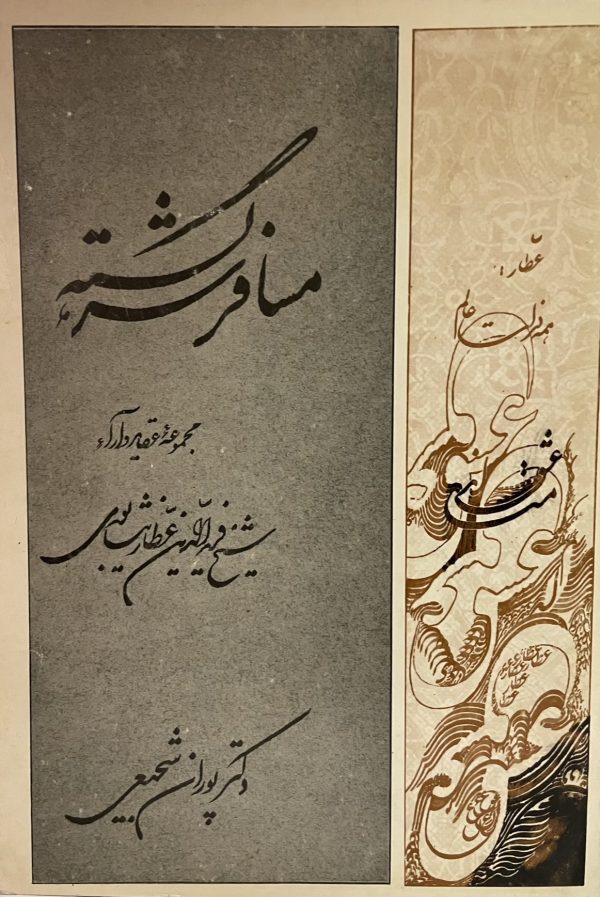 مسافر سرگشته
مجموعهٔ عقاید و آراء
شیخ فریدالدین عطار نیشابوری
دکتر پوران شجیعی
عطار:
همه ذرات عالم
عشق